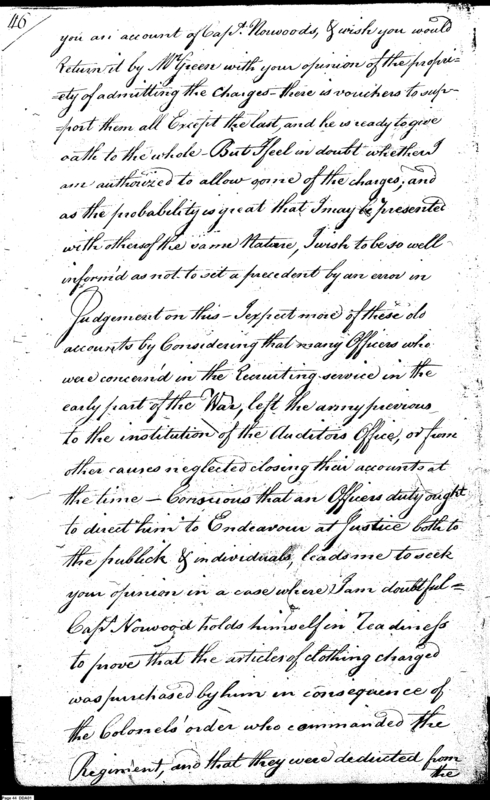 46
you an account of Capt. Norwoods, & wish you would
Return it by Mr Green with your opinion of the propri-
=ety of admitting the Charges - there is vouchers to sup-
=port them all Except the last, and he is ready to give
oath to the whole - But I feel in doubt whether I
am authorized to allow some of the charges, and
as the probability is great that I may be presented
with others of the same Nature, I wish to be so well
inform'd as not to set a precedent by an error in
Judgement on this - I expect more of these old
accounts by Considering that many Officers who
were concern'd in the Recruiting service in the
early part of the War, left the army previous
to the institution of the Auditors Office, or from
other causes neglected closing their accounts at
the time - Conscious that an Officers duty ought
to direct him to Endeavour at Justice both to
the publick & individuals, leads me to seek
your opinion in a case where I am doubtful =
Capt. Norwood holds himself in Readiness
to prove that the articles of clothing charged
was purchased by him in consequence of
the Colonels' order who commanded the
Regiment, and that they were deducted from
the
Page 46 DDA01